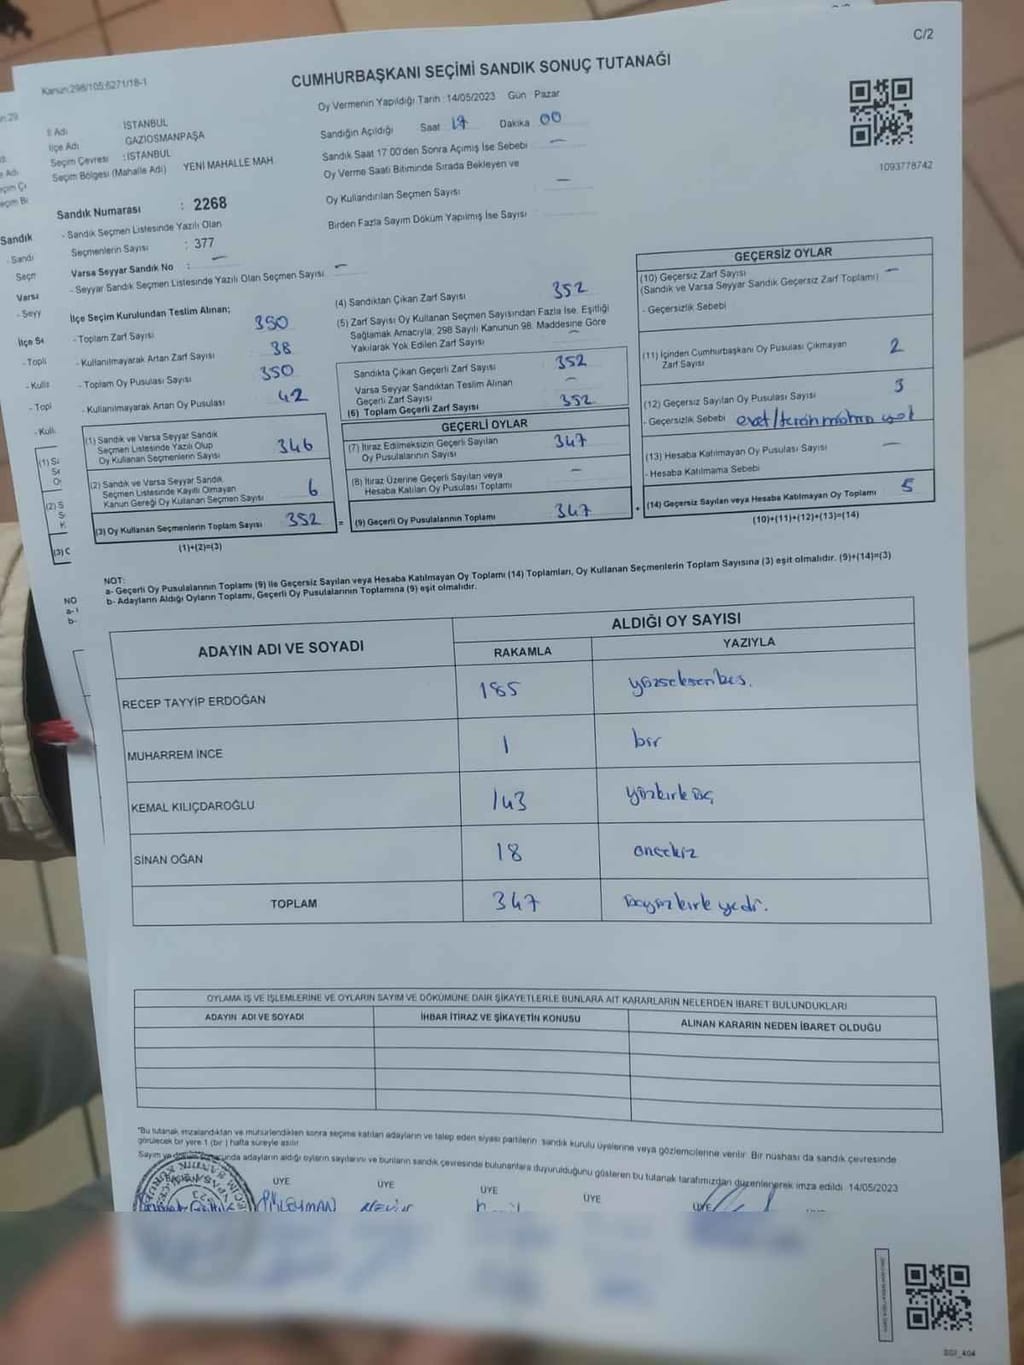 C/2
Kanun:298/105;6271/18-1
CUMHURBAŞKANI SEÇİMİ SANDIK SONUÇ TUTANAĞI
İl Adı İSTANBUL
İlçe Adı GAZİOSMANPAŞA
Seçim Çevresi :İSTANBUL
Seçim Bölgesi (Mahalle Adı) YENİ MAHALLE MAH.
Sandık Numarası : 2268
- Sandık Seçmen Listesinde Yazılı Olan
Seçmenlerin Sayısı : 377
Varsa Seyyar Sandık No : —
- Seyyar Sandık Seçmen Listesinde Yazılı Olan Seçmen Sayısı —
Oy Vermenin Yapıldığı Tarih : 14/05/2023 Gün Pazar
Sandığın Açıldığı Saat 17 Dakika 00
Sandık Saat 17:00'den Sonra Açımış İse Sebebi —
Oy Verme Saati Bitiminde Sırada Bekleyen ve
Oy Kullandırılan Seçmen Sayısı —
Birden Fazla Sayım Döküm Yapılmış İse Sayısı
1093778742
İlçe Seçim Kurulundan Teslim Alınan;
- Toplam Zarf Sayısı 350
- Kullanılmayarak Artan Zarf Sayısı 38
- Toplam Oy Pusulası Sayısı 350
- Kullanılmayarak Artan Oy Pusulası 42
(1) Sandık ve Varsa Seyyar Sandık
Seçmen Listesinde Yazılı Olup
Oy Kullanan Seçmenlerin Sayısı 346
(2) Sandık ve Varsa Seyyar Sandık
Seçmen Listesinde Kayıtlı Olmayan
Kanun Gereği Oy Kullanan Seçmen Sayısı 6
(3) Oy Kullanan Seçmenlerin Toplam Sayısı 352
(1)+(2)=(3)
(4) Sandıktan Çıkan Zarf Sayısı 352
(5) Zarf Sayısı Oy Kullanan Seçmen Sayısından Fazla İse, Eşitliği
Sağlamak Amacıyla, 298 Sayılı Kanunun 98. Maddesine Göre
Yakılarak Yok Edilen Zarf Sayısı —
Sandıkta Çıkan Geçerli Zarf Sayısı 352
Varsa Seyyar Sandıktan Teslim Alınan
Geçerli Zarf Sayısı —
(6) Toplam Geçerli Zarf Sayısı 352
GEÇERLİ OYLAR
(7) İtiraz Edilmeksizin Geçerli Sayılan
Oy Pusulalarının Sayısı 347
(8) İtiraz Üzerine Geçerli Sayılan veya
Hesaba Katılan Oy Pusulası Toplamı —
= (9) Geçerli Oy Pusulalarının Toplamı 347
GEÇERSİZ OYLAR
(10) Geçersiz Zarf Sayısı —
(Sandık ve Varsa Seyyar Sandık Geçersiz Zarf Toplamı)
- Geçersizlik Sebebi
(11) İçinden Cumhurbaşkanı Oy Pusulası Çıkmayan
Zarf Sayısı 2
(12) Geçersiz Sayılan Oy Pusulası Sayısı 3
- Geçersizlik Sebebi evet/tercih mührü yok
(13) Hesaba Katılmayan Oy Pusulası Sayısı —
- Hesaba Katılmama Sebebi
+ (14) Geçersiz Sayılan veya Hesaba Katılmayan Oy Toplamı 5
(10)+(11)+(12)+(13)=(14)
NOT:
a- Geçerli Oy Pusulalarının Toplamı (9) ile Geçersiz Sayılan veya Hesaba Katılmayan Oy Toplamı (14) Toplamları, Oy Kullanan Seçmenlerin Toplam Sayısına (3) eşit olmalıdır. (9)+(14)=(3)
b- Adayların Aldığı Oyların Toplamı, Geçerli Oy Pusulalarının Toplamına (9) eşit olmalıdır.
ADAYIN ADI VE SOYADI
ALDIĞI OY SAYISI
RAKAMLA YAZIYLA
RECEP TAYYİP ERDOĞAN 185 yüzseksenbeş.
MUHARREM İNCE 1 bir
KEMAL KILIÇDAROĞLU 143 yüzkırküç
SİNAN OĞAN 18 onsekiz
TOPLAM 347 üçyüzkırkyedi.
OYLAMA İŞ VE İŞLEMLERİNE VE OYLARIN SAYIM VE DÖKÜMÜNE DAİR ŞİKAYETLERLE BUNLARA AİT KARARLARIN NELERDEN İBARET BULUNDUKLARI
ADAYIN ADI VE SOYADI İHBAR İTİRAZ VE ŞİKAYETİN KONUSU ALINAN KARARIN NEDEN İBARET OLDUĞU
*Bu tutanak imzalandıktan ve mühürlendikten sonra seçime katılan adayların ve talep eden siyasi partilerin sandık kurulu üyelerine veya gözlemcilerine verilir. Bir nüshası da sandık çevresinde
görülecek bir yere 1 (bir ) hafta süreyle asılır.
adayların aldığı oyların sayılarını ve bunların sandık çevresinde bulunanlara duyurulduğunu gösteren bu tutanak tarafımızdan düzenlenerek imza edildi. 14/05/2023
ÜYE ÜYE ÜYE ÜYE ÜYE